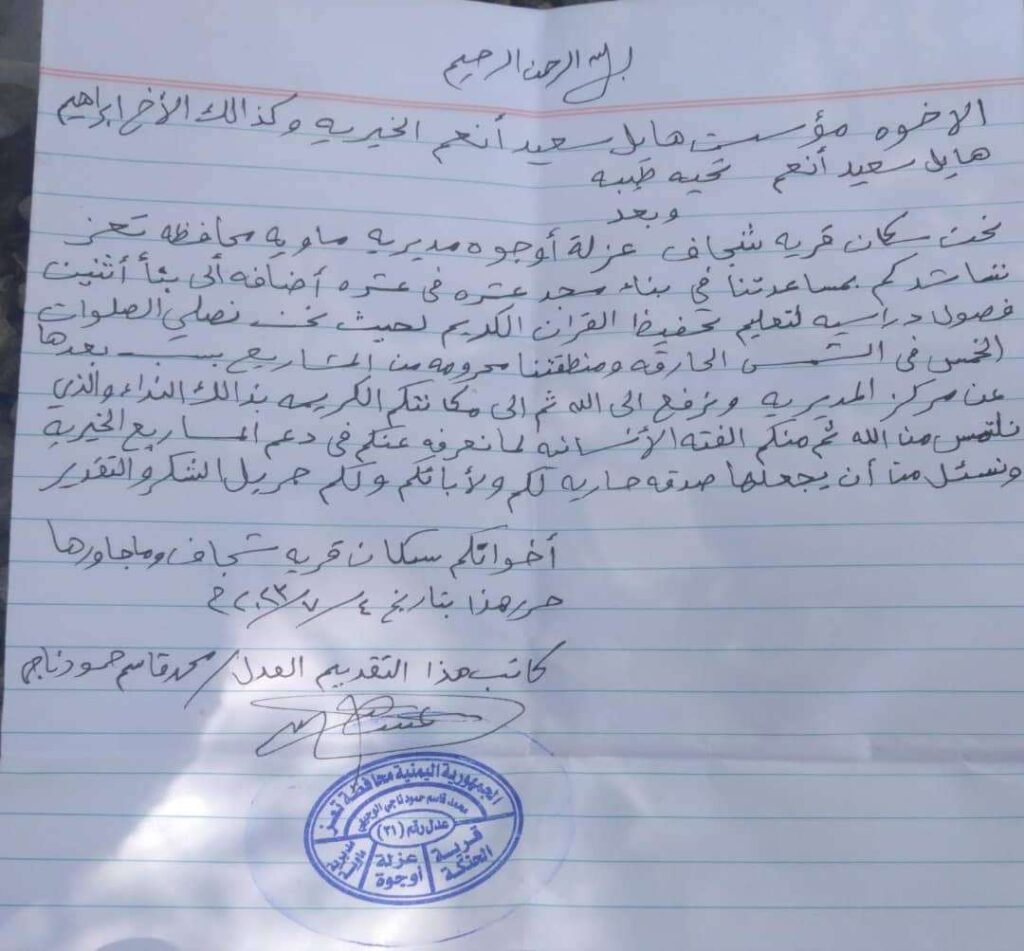 بسم الله الرحمن الرحيم
الاخوه مؤسست هايل سعيد أنعم الخيريه وكذالك الأخ ابراهيم
هايل سعيد أنعم تحيه طيبه
وبعد
نحن سكان قريه شجاف عزلة أوجوه مديريه ماويه محافظه تعز
نناشدكم بمساعدتنا في بناء مسجد عشره في عشره أضافه ألى بنأ أثنين
فصول دراسيه لتعليم تحفيظ القران الكريم لحيث نحن نصلي الصلوات
الخمس في الشمس الحارقه ومنطقتنا محرومه من المشاريع بسبب بعدها
عن مركز المديريه ونرفع الى الله ثم الى مكانتكم الكريمه بذالك النداء والذي
نلتمس من الله ثم منكم الفته الأنسانيه لما نعرفه عنكم في دعم المشاريع الخيريه
ونسئل من أن يجعلها صدقه جاريه لكم ولأبائكم ولكم جزيل الشكر والتقدير
أخوانكم سكان قريه شجاف وماجاورها
حرر هذا بتاريخ ٤/٧/٢٠٢٣م
كاتب هذا التقديم العدل/ محمد قاسم حمود ناجي
الجمهورية اليمنية محافظة تعز
محمد قاسم حمود ناجي الوجيهي
عدل رقم (٣١)
قرية الحنكة
عزلة أوجوة
مديرية ماوية